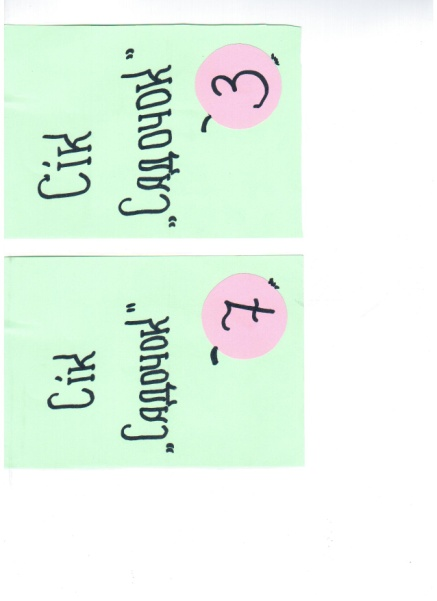 Сік
„Садочок"
3
Сік
„Садочок"
7